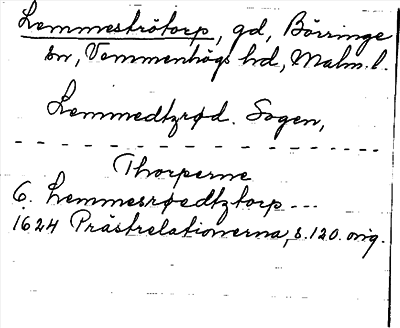 Lemmeströtorp, gd, Börringe
sn, Vemmenhögs hd, Malm. l.
Lemmedtzrød. Sogen,
Thorperne
6. Lemmesrøedtztorp ---
1624 Prästrelationerna, s. 120. orig.